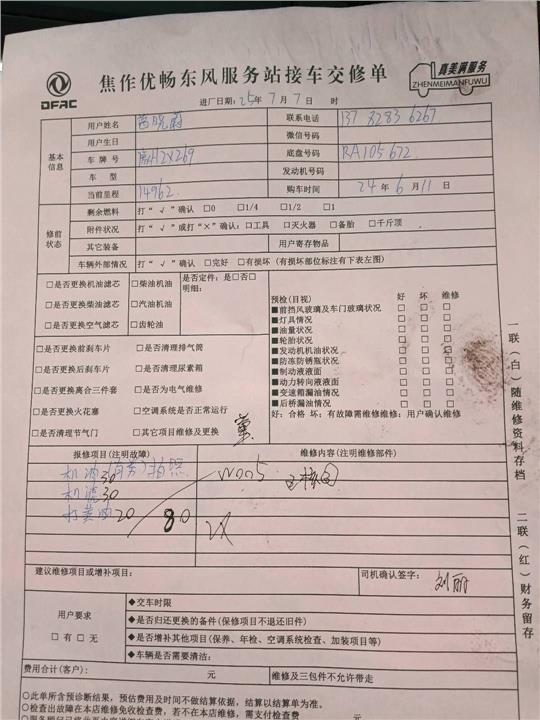 DFAC
焦作优畅东风服务站接车交修单
真美满服务
ZHENMEIMANFUWU
进厂日期: 25年 7月 7日 时
用户姓名 联系电话 137 3283 6267
用户生日 微信号码
基本信息
车牌号 H2X269 底盘号码 RA105672
车型 发动机号码
当前里程 14962 购车时间 24年 6月 11日
修前状态
剩余燃料 打“√”确认 □0 □1/4 □1/2 □1
附件状况 打“√”或打“×”确认: □工具 □灭火器 □备胎 □千斤顶
其它装备 用户寄存物品
车辆外部情况 打“√”确认 □完好 □有损坏 (有损坏部位标注有下表左图)
□是否更换机油滤芯 □柴油机油 是否定件: 是□否□
明细:
□是否更换柴油滤芯 □汽油机油
□是否更换空气滤芯 □齿轮油
预检(目视) 好 坏 维修
■前挡风玻璃及车门玻璃状况 □ □ □
■灯具情况 □ □ □
■油量状况 □ □ □
■轮胎状况 □ □ □
■发动机机油状况 □ □ □
■防冻防锈瓶状况 □ □ □
■制动液液面 □ □ □
■动力转向液液面 □ □ □
■变速箱漏油情况 □ □ □
■后桥漏油情况 □ □ □
好: 合格 坏: 有故障需维修维修: 用户确认维修
□是否更换前刹车片 □是否清理排气筒
□是否更换后刹车片 □是否清理尿素箱
□是否更换离合三件套 □是否为电气维修
□是否更换火花塞 □空调系统是否正常运行
□是否清理节气门 □其它项目维修及更换
报修项目(注明故障) 维修内容(注明维修部件)
机油30 拍照 W005
机滤30
打黄油20 80
建议维修项目或增补项目: 司机确认签字: 刘丽
用户要求
□有 □无
◆交车时限
◆是否归还更换的备件(保修项目不退还旧件)
◆是否增补其他项目(保养、年检、空调系统检查、加装项目等)
◆车辆是否需要清洁:
费用合计(客户): 元 维修及三包件不允许带走
○此单所含预诊断结果, 预估费用及时间不做结算依据, 结算以结算单为准。
○检查出故障在本店维修免收检查费, 若不在本店维修, 需支付检查费 元
一联(白)随维修资料存档 二联(红)财务留存